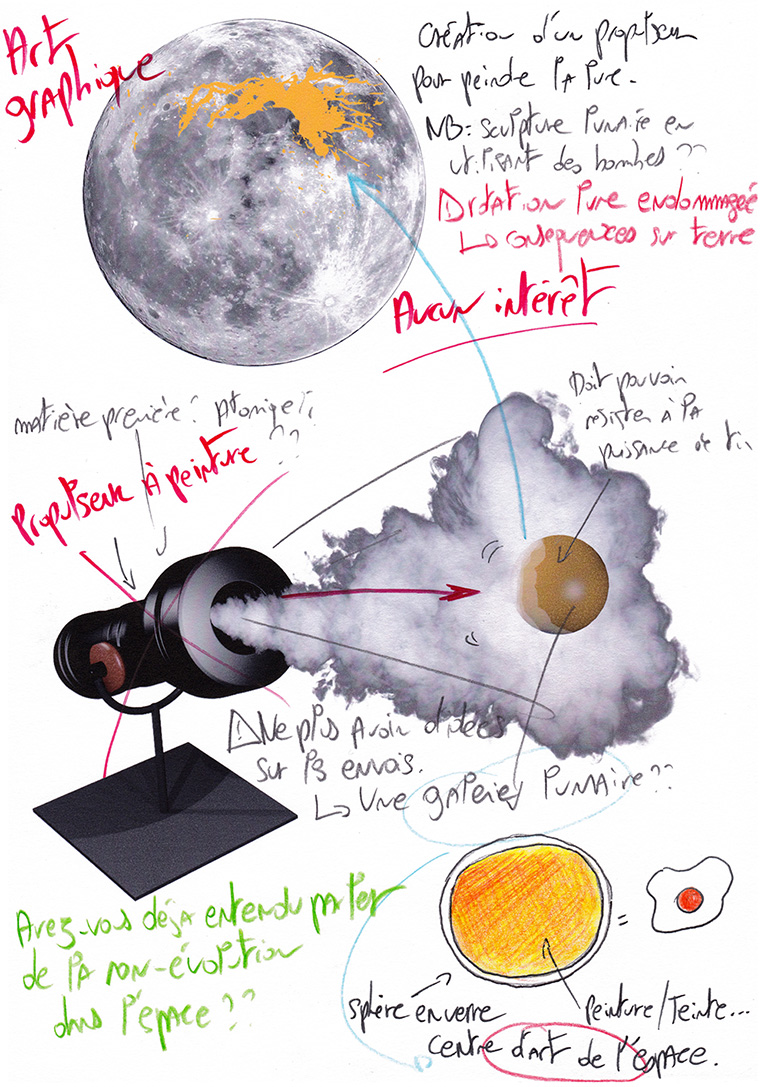 Art
graphique
Création d'un propulseur
pour peindre la lune.
NB: sculpture lunaire en
utilisant des bombes ??
⚠ rotation lune endommagée
↳ conséquences sur terre
Aucun intérêt
matière première ? Atomique ??
??
Propulseur à peinture
Doit pouvoir
résister à la
puissance de tir
⚠ Ne plus avoir d'idées
sur les envois.
↳ Une galerie lunaire ??
Avez-vous déjà entendu parler
de la non-évolution
dans l'espace ??
=
sphère en verre
peinture/teinte...
centre d'art de l'espace.